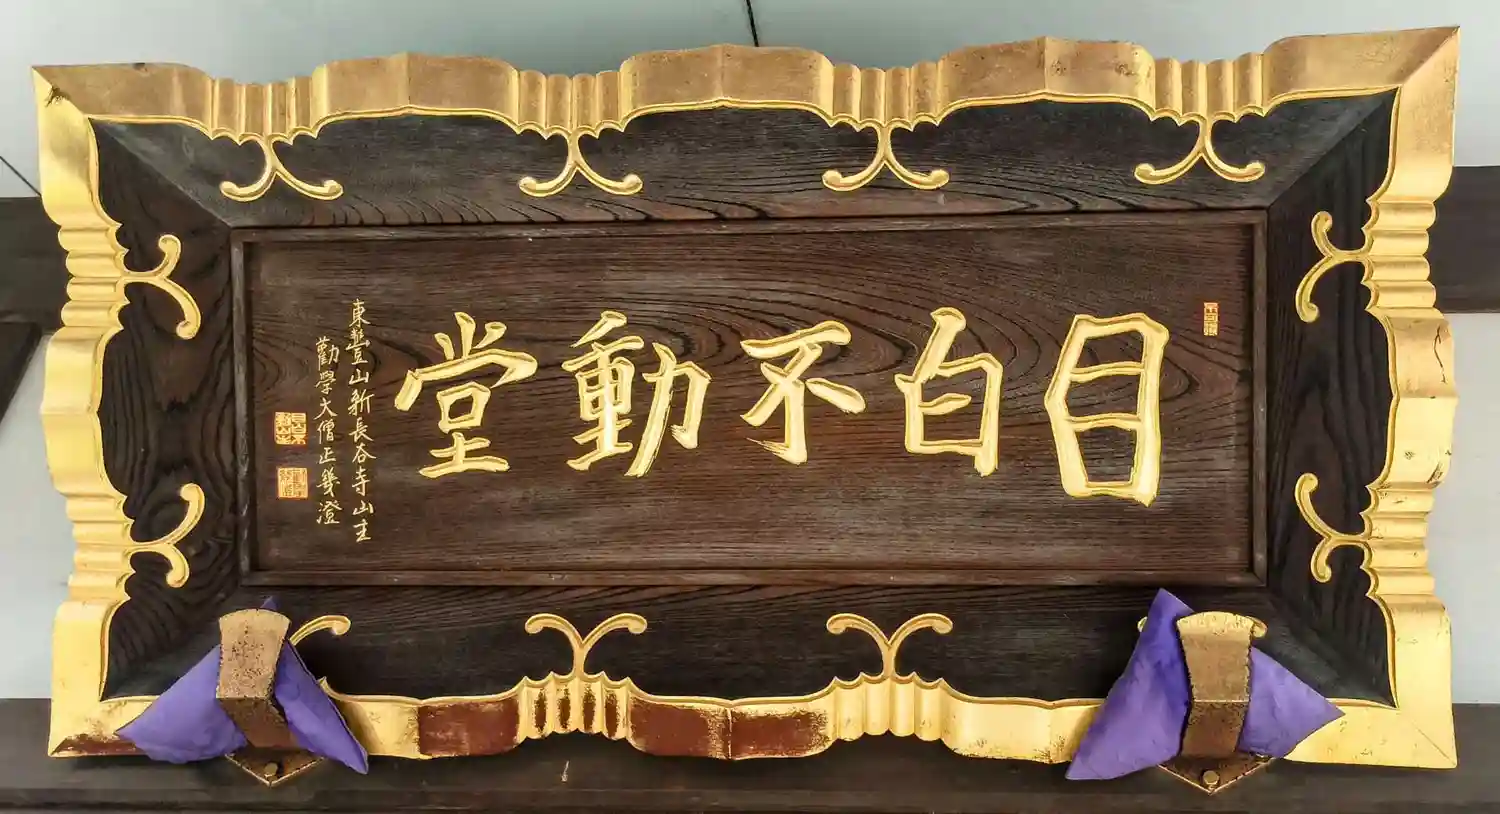 目白不動堂
東豐山新長谷寺山主
勸學大僧正幾澄